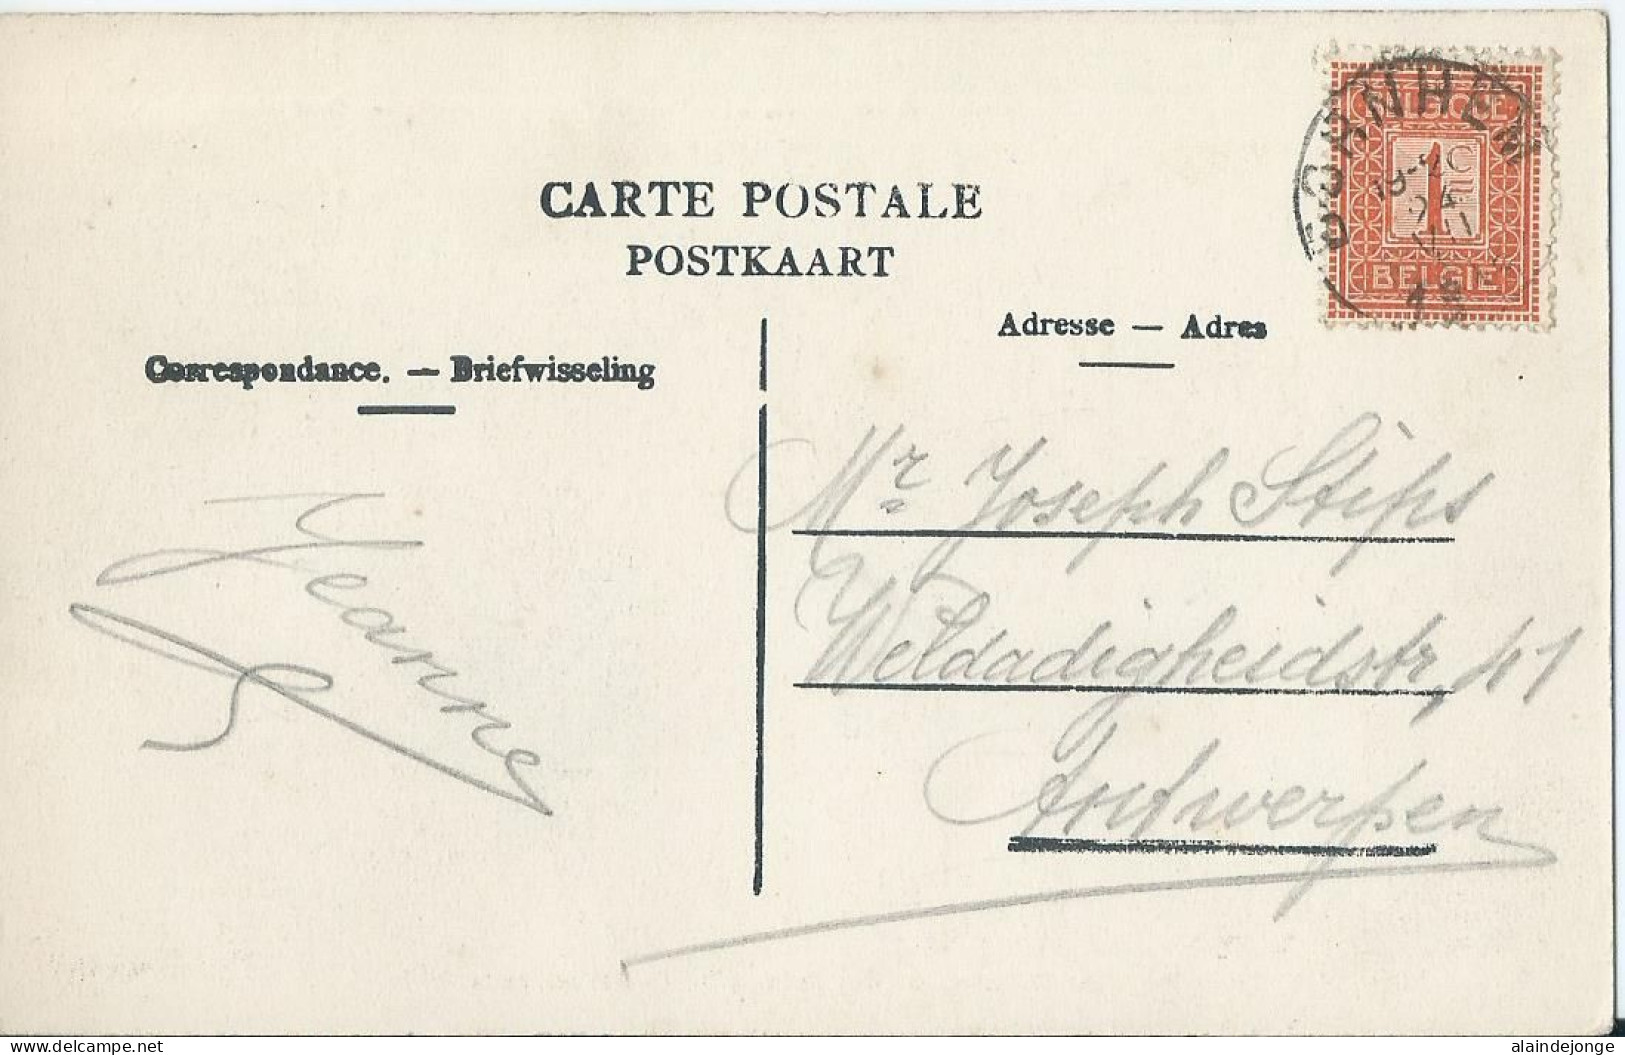 CARTE POSTALE
POSTKAART
Correspondance. — Briefwisseling
Adresse — Adres
BELGIQUE
1
BELGIE
BORNHEM
19-20
24
VII
Mr Joseph Stips
Weldadigheidstr, 41
Antwerpen
Jeanne
delcampe.net
alaindejonge